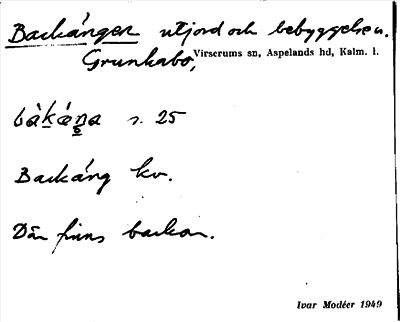 Backången utjord och bebyggelsen.
Grunkabo, Virserums sn, Aspelands hd, Kalm. l.
bàkáŋa s. 25
Backång kv.
Där finns backar.
Ivar Modéer 1949